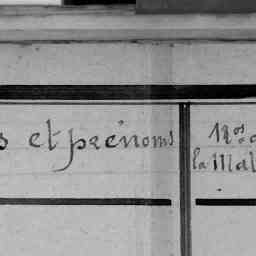 s et prénoms
Nos d
la Mat